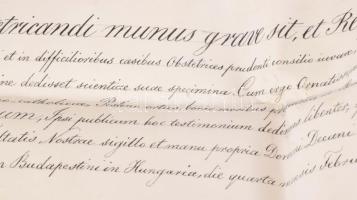 tricandi munus grave sit, et Re
et in difficilioribus casibus Obstetrices prudenti consilio iuvare
ine dedisset scientiae suae specimina. Cum ergo Ornatis
catholicam
um, Ipsi publicum hoc testimonium dedimus libenter,
ltatis Nostrae sigillo et manu propria Domini Decani
Budapestini in Hungaria, die quarta mensis Febru